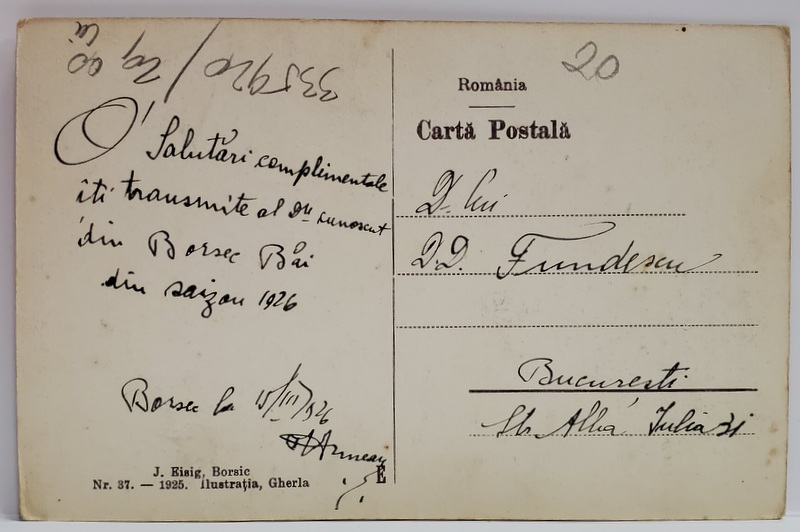 335920 / 20 90
lei
O Salutări complimentale
îti transmite al Dtle cunoscut
din Borsec Băi
din saizon 1926
Borsec la 15/III/1926
J. Eisig, Borsic
Nr. 37. — 1925. Ilustrația, Gherla
E
20
România
Cartă Postală
D. lui
D.D. Fundescu
Bucuresti
Str. Alba Iulia 31